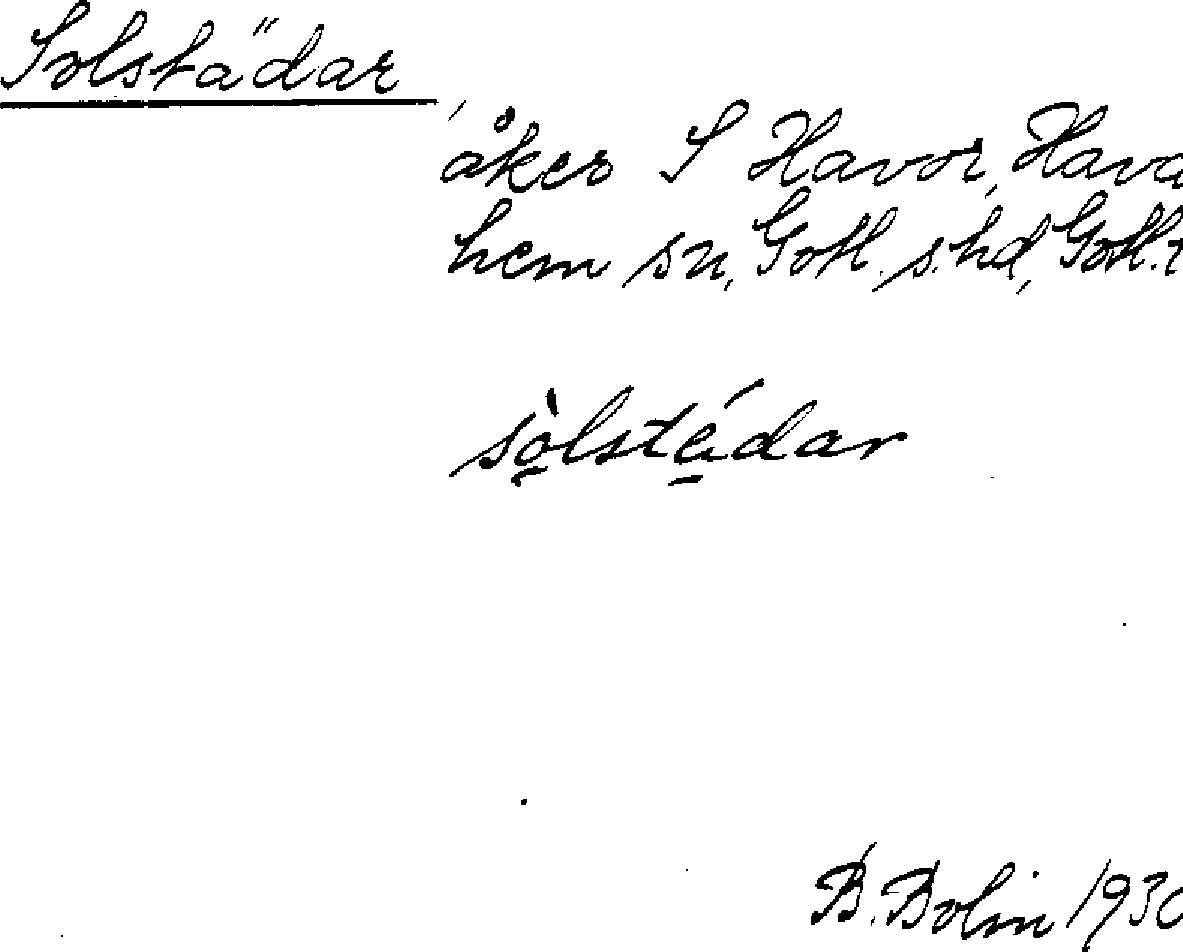 Solstädar,
åker S Havor, Hava
hem sn, Gotl. s. hd, Gotl.
sòlstédar
B. Bolin 193